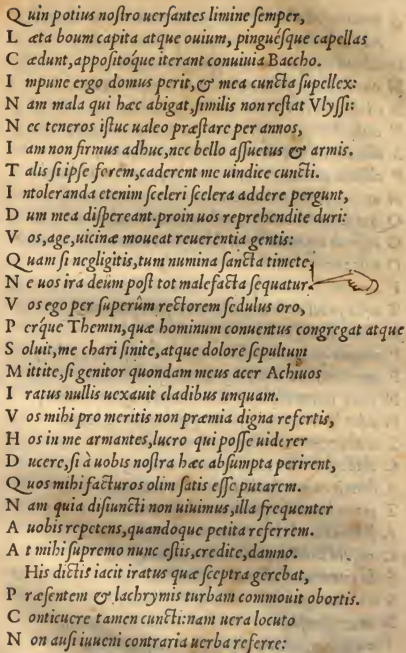 Quin potius noſtro uerſantes limine ſemper,
Læta boum capita atque ouium, pinguéſque capellas
Cædunt, appoſitóque iterant conuiuia Baccho.
Impune ergo domus perit, & mea cuncta ſupellex:
Nam mala qui hæc abigat, ſimilis non reſtat Vlyſſi:
Nec teneros iſtuc ualeo præſtare per annos,
Iam non firmus adhuc, nec bello aſſuetus & armis.
Talis ſi ipſe forem, caderent me uindice cuncti.
Intoleranda etenim ſceleri ſcelera addere pergunt,
Dum mea diſpereant. proin uos reprehendite duri:
Vos, age, uicinæ moueat reuerentia gentis:
Quam ſi negligitis, tum numina ſancta timete,
Ne uos ira deûm poſt tot malefacta ſequatur.
Vos ego per ſuperûm rectorem ſedulus oro,
Pérque Themin, quæ hominum conuentus congregat atque
Soluit, me chari ſinite, atque dolore ſepultum
Mittite, ſi genitor quondam meus acer Achiuos
Iratus nullis uexauit cladibus unquam.
Vos mihi pro meritis non præmia digna refertis,
Hos in me armantes, lucro qui poſſe uiderer
Ducere, ſi à uobis noſtra hæc abſumpta perirent,
Quos mihi facturos olim ſatis eſſe putarem.
Nam quia diſiuncti non uiuimus, illa frequenter
A uobis repetens, quandoque petita referrem.
At mihi ſupremo nunc eſtis, credite, damno.
His dictis iacit iratus quæ ſceptra gerebat,
Præſentem & lachrymis turbam commouit obortis.
Conticuere tamen cuncti: nam uera locuto
Non auſi iuueni contraria uerba referre: